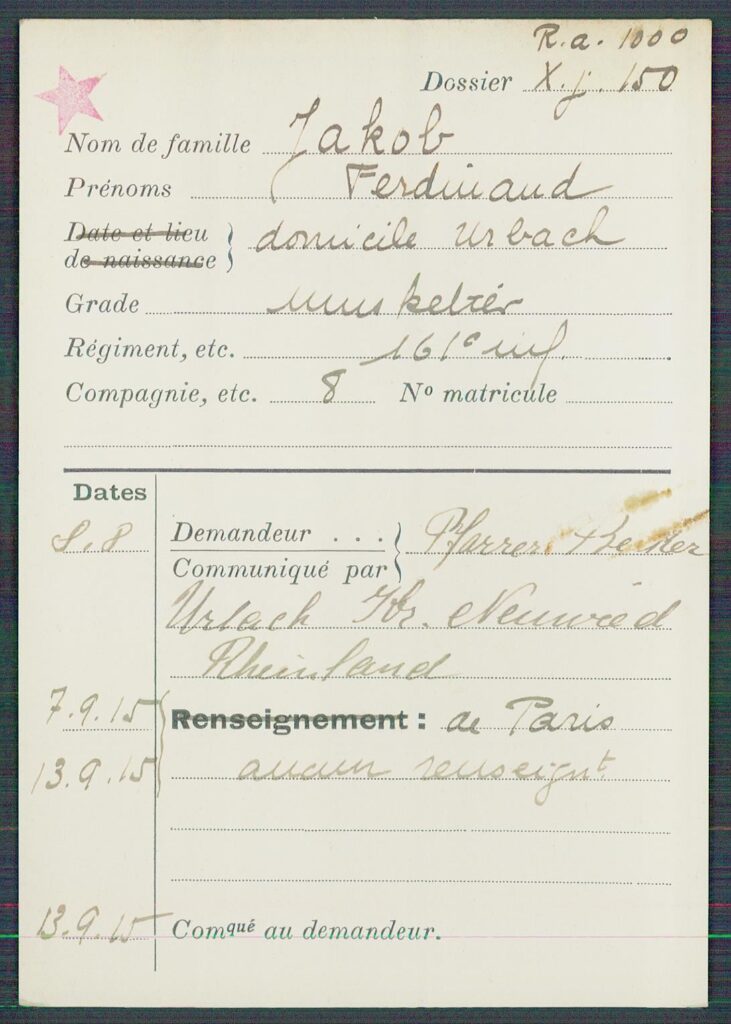 R.a. 1000
Dossier X.j. 150
Nom de famille Jakob
Prénoms Ferdinand
Date et lieu de naissance } domicile Urbach
Grade Musketier
Régiment, etc. 161e inf.
Compagnie, etc. 8 No matricule
Dates
8.8 Demandeur . . . } Pfarrer
Communiqué par
Urbach Kr. Neuwied
Rheinland
7.9.15 Renseignement : de Paris
13.9.15 aucun renseignt.
13.9.15 Comqué au demandeur.